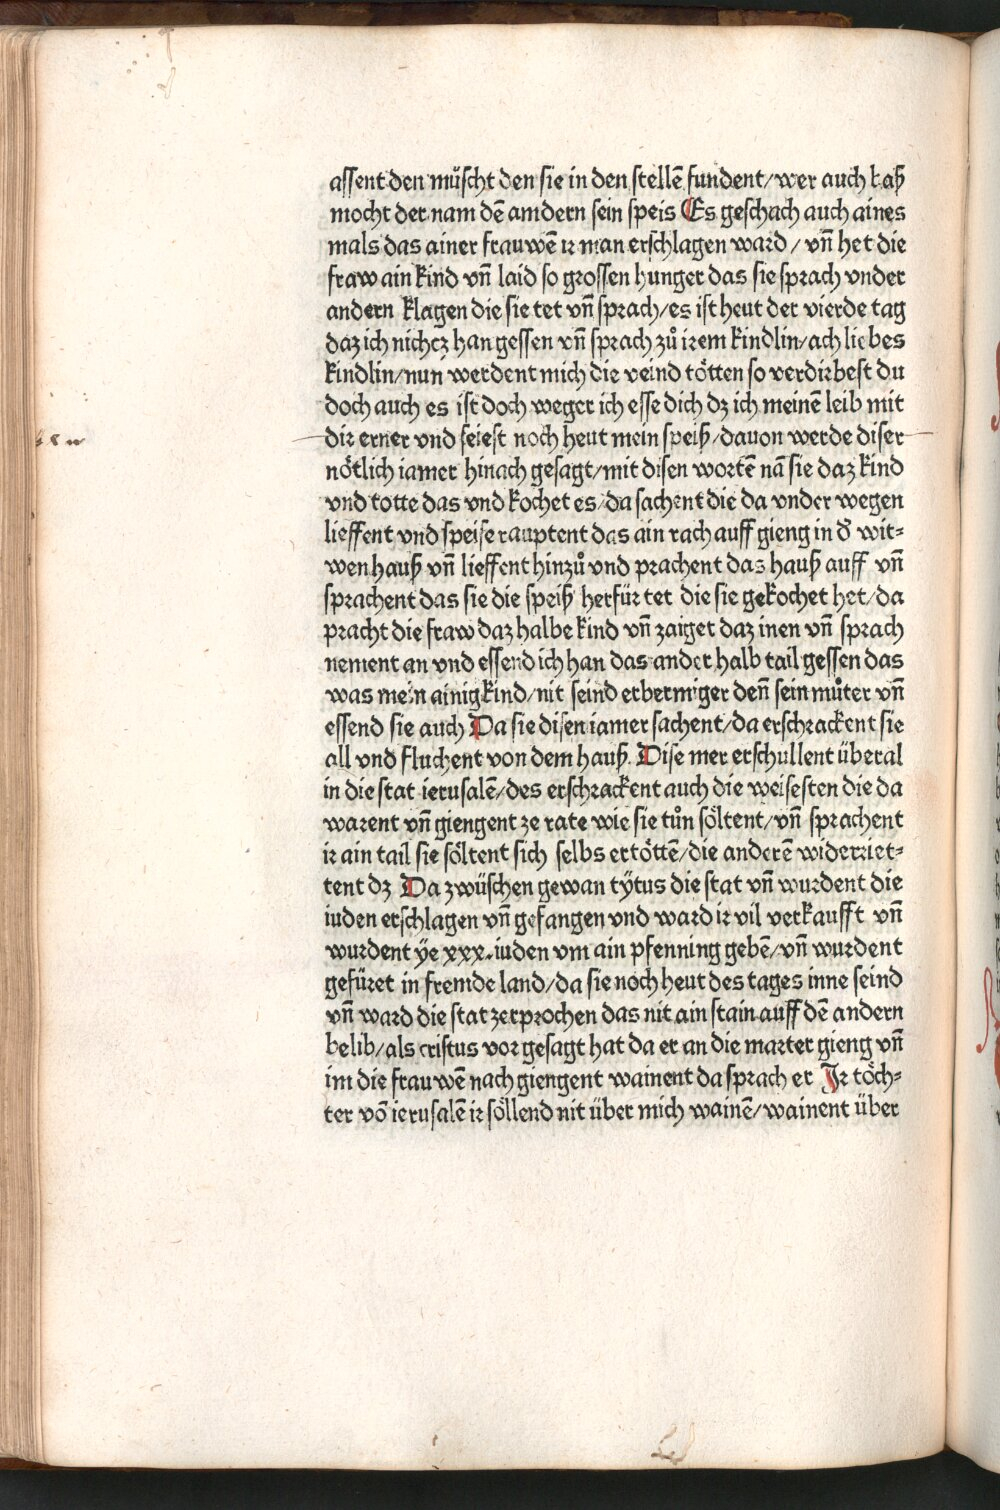 assent den müscht den sie in den stellē fundent/wer auch baß
mocht der nam dē amdern sein speis Es geschach auch aines
mals das ainer frauwē ir man erschlagen ward/vn̄ het die
fraw ain kind vn̄ laid so grossen hunger das sie sprach vnder
andern klagen die sie tet vn̄ sprach/es ist heut der vierde tag
daz ich nichcz han gessen vn̄ sprach zů irem kindlin/ach liebes
kindlin/nun werdent mich die veind tötten so verdirbest du
doch auch es ist doch weger ich esse dich dz ich meinē leib mit
dir erner vnd seiest noch heut mein speiß/dauon werde diser
nötlich iamer hinach gesagt/mit disen wortē nā sie daz kind
vnd totte das vnd kochet es/da sachent die da vnder wegen
lieffent vnd speise rauptent das ain rach auff gieng in d̛ wit⸗
wen hauß vn̄ lieffent hinzů vnd prachent daz hauß auff vn̄
sprachent das sie die speiß herfür tet die sie gekochet het/da
pracht die fraw daz halbe kind vn̄ zaiget daz inen vn̄ sprach
nement an vnd essend ich han das ander halb tail gessen das
was mein ainig kind/nit seind erbermiger den̄ sein můter vn̄
essend sie auch Da sie disen iamer sachent/da erschrackent sie
all vnd fluchent von dem hauß. Dise mer erschullent überal
in die stat ierusalē/des erschrackent auch die weisesten die da
warent vn̄ giengent ze rate wie sie tůn söltent/vn̄ sprachent
ir ain tail sie söltent sich selbs ertöttē/die anderē widerriet⸗
tent dz Da zwüschen gewan tÿtus die stat vn̄ wurdent die
iuden erschlagen vn̄ gefangen vnd ward ir vil verkaufft vn̄
wurdent ÿe xxx. iuden vm ain pfenning gebē/vn̄ wurdent
gefüret in fremde land/da sie noch heut des tages inne seind
vn̄ ward die stat zerprochen das nit ain stain auff dē andern
belib/als cristus vor gesagt hat da er an die marter gieng vn̄
im die frauwē nach giengent wainent da sprach er Ir töch⸗
ter vō ierusalē ir söllend nit über mich wainē/wainent über